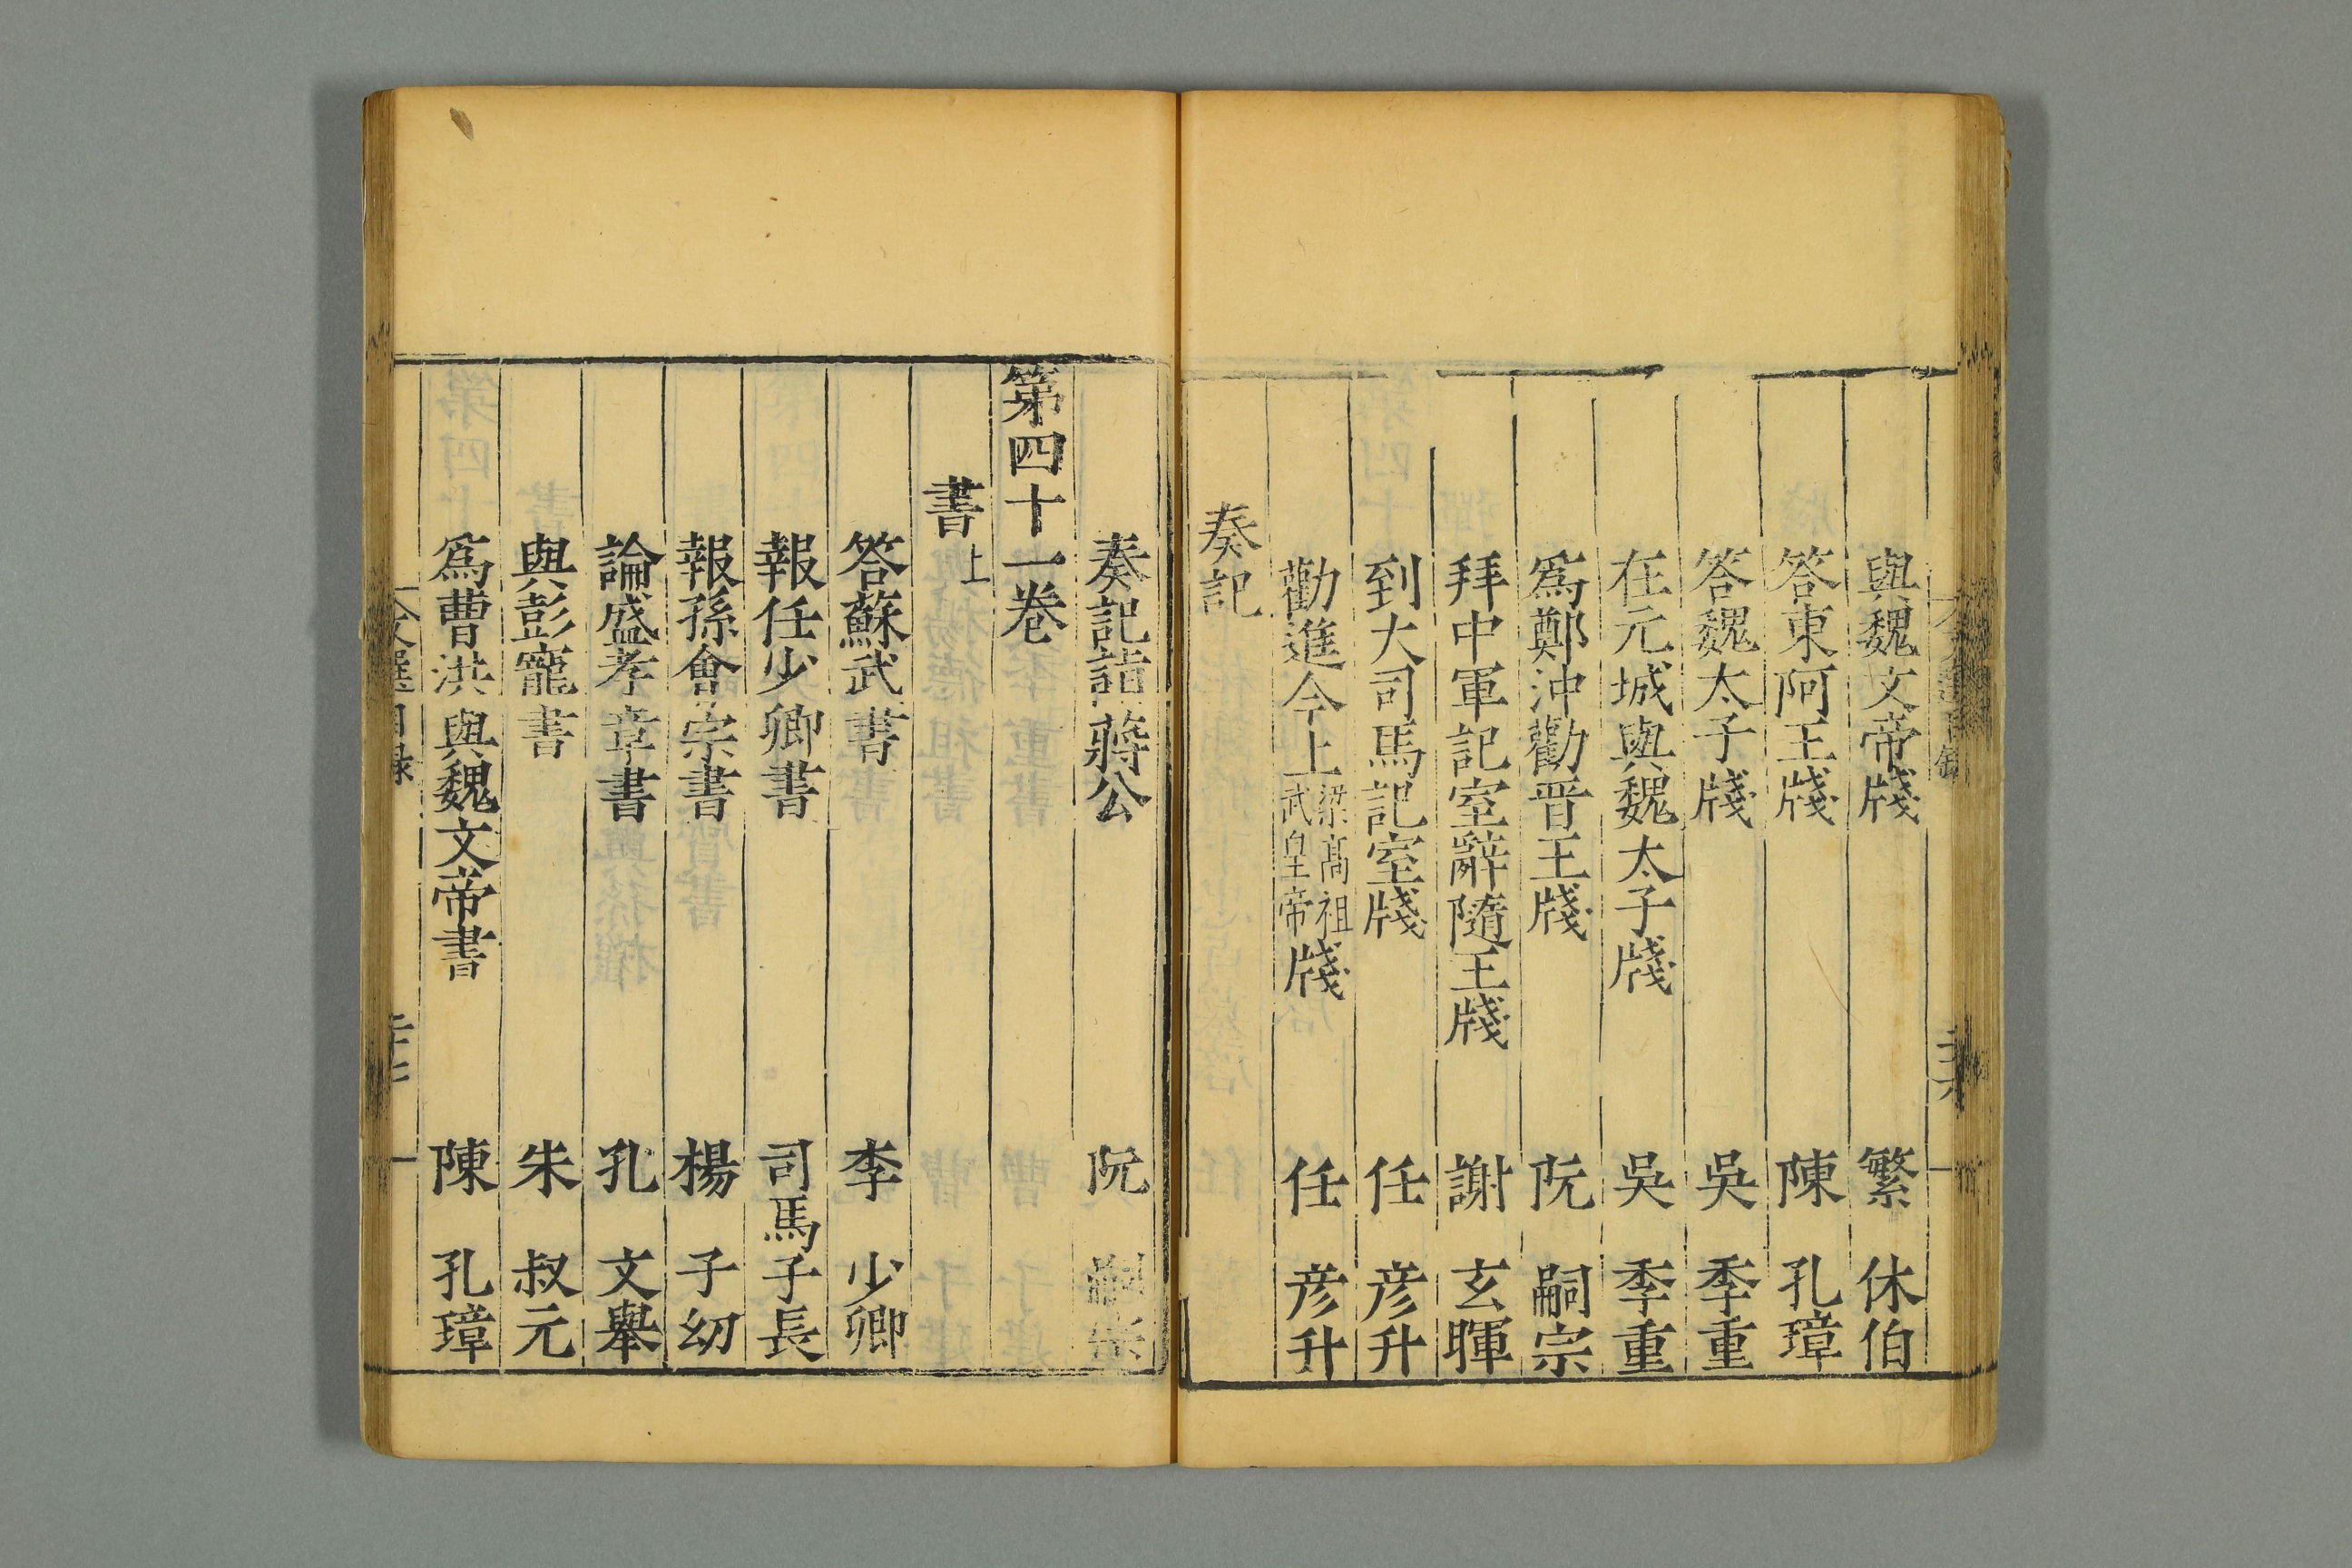 與魏文帝牋 繁 休伯
答東阿王牋 陳 孔璋
答魏太子牋 吳 季重
在元城與魏太子牋 吳 季重
爲鄭沖勸晋王牋 阮 嗣宗
拜中軍記室辭隨王牋 謝 玄暉
到大司馬記室牋 任 彦升
勸進今上梁高祖武皇帝牋 任 彦升
奏記
奏記詣蔣公 阮 嗣宗
第四十一卷
書上
答蘇武書 李 少卿
報任少卿書 司馬子長
報孫會宗書 楊 子幼
論盛孝章書 孔 文舉
與彭寵書 朱 叔元
爲曹洪與魏文帝書 陳 孔璋
文選目録